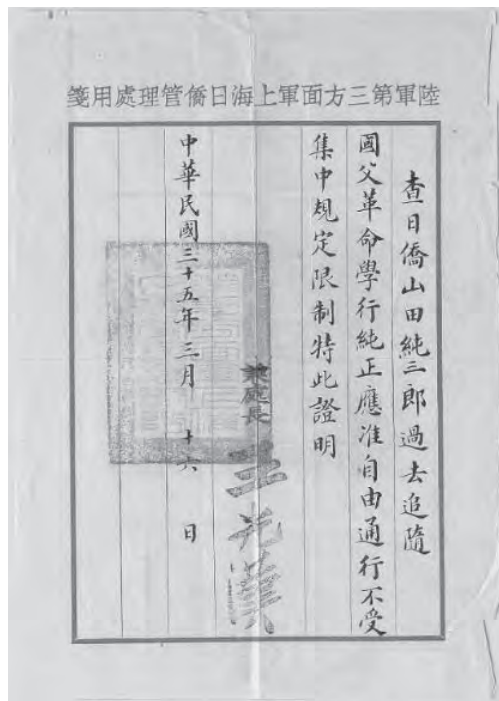 陸軍第三方面軍上海日僑管理處用箋
查日僑山田純三郎過去追隨
國父革命學行純正應准自由通行不受
集中規定限制特此證明
兼處長 王光漢
中華民國三十五年三月 十六 日